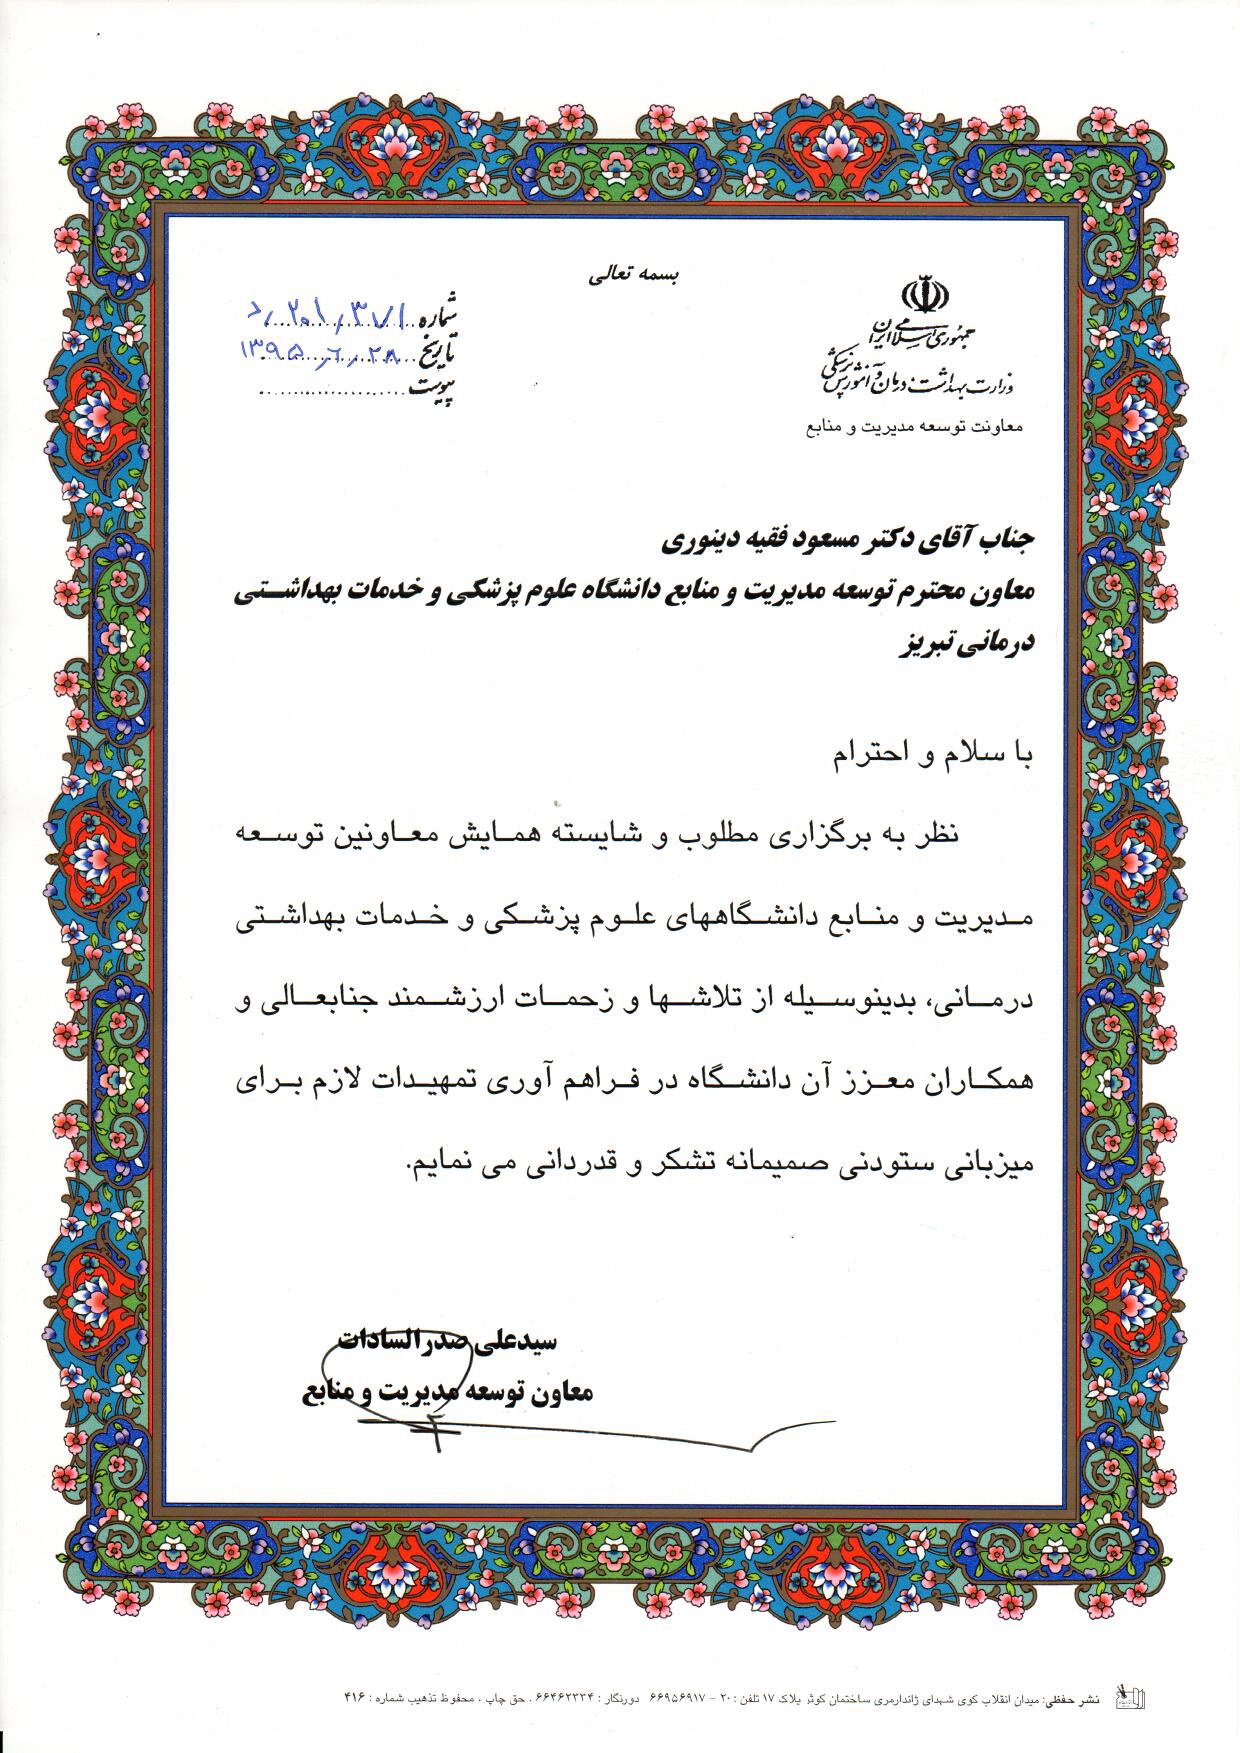 بسمه تعالی
جمهوری اسلامی ایران
وزارت بهداشت، درمان و آموزش پزشکی
معاونت توسعه مدیریت و منابع
شماره ۲۰۱٫۳۷۱
تاریخ ۱۳۹۵٫۶٫۲۸
پیوست
جناب آقای دکتر مسعود فقیه دینوری
معاون محترم توسعه مدیریت و منابع دانشگاه علوم پزشکی و خدمات بهداشتی
درمانی تبریز
با سلام و احترام
نظر به برگزاری مطلوب و شایسته همایش معاونین توسعه
مدیریت و منابع دانشگاههای علوم پزشکی و خدمات بهداشتی
درمانی، بدینوسیله از تلاشها و زحمات ارزشمند جنابعالی و
همکاران معزز آن دانشگاه در فراهم آوری تمهیدات لازم برای
میزبانی ستودنی صمیمانه تشکر و قدردانی می نمایم.
سیدعلی صدرالسادات
معاون توسعه مدیریت و منابع
نشر حفظی: میدان انقلاب کوی شهدای ژاندارمری ساختمان کوثر پلاک ۱۷ تلفن : ۲۰ - ۶۶۹۵۶۹۱۷ دورنگار : ۶۶۴۶۲۳۳۴ . حق چاپ ، محفوظ تذهیب شماره : ۴۱۶